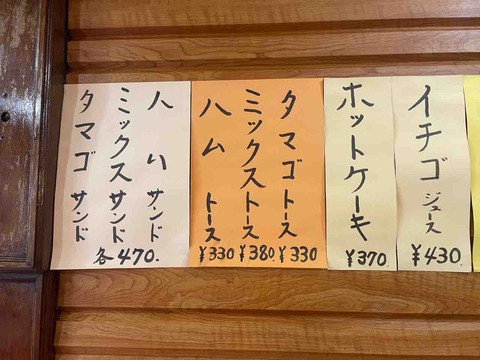 イチゴ ジュース
¥430.
ホットケーキ
¥370
タマゴ トース
¥330
ミックストース
¥380.
ハム トース
¥330
ハム サンド
ミックスサンド
タマゴ サンド
各470.